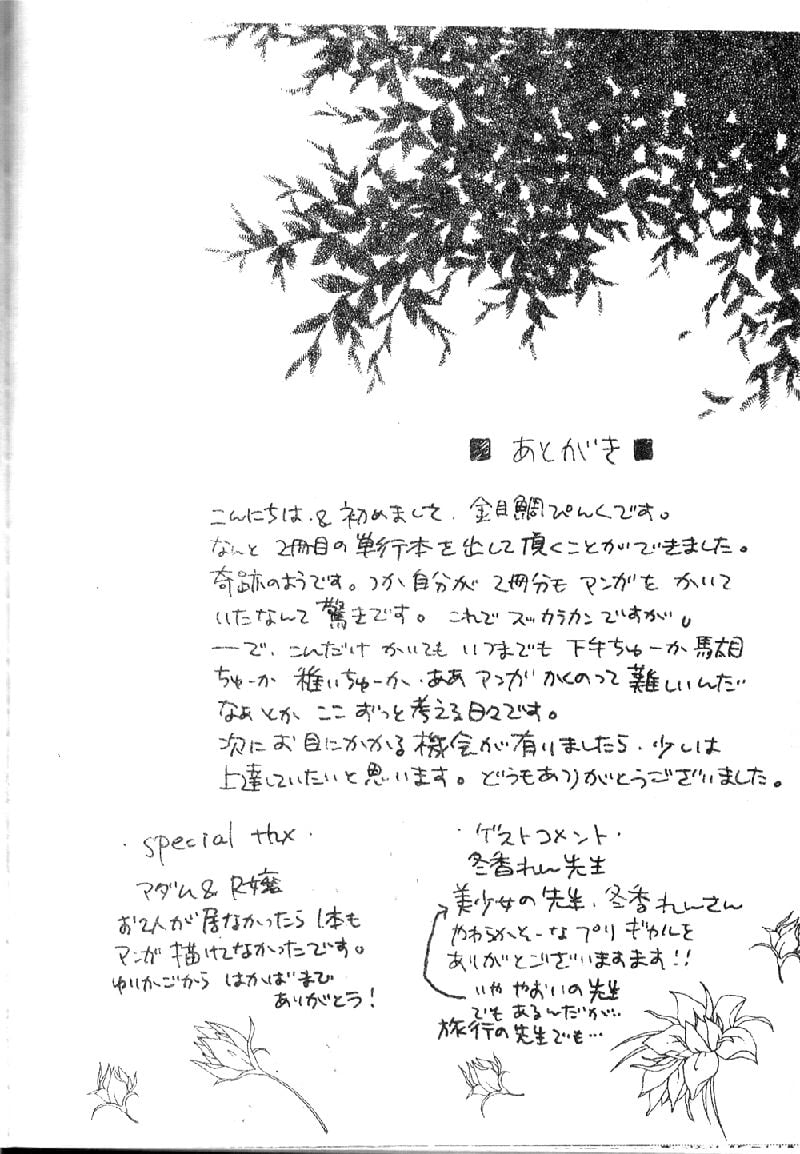 ■ あとがき ■
こんにちは、& 初めまして、金目鯛ぴんくです。
なんと 2冊目の単行本を出して頂くことができました。
奇跡のようです。つか自分が 2冊分も マンガを かいて
いたなんて 驚きです。これで スッカラカンですが。
ーで、こんだけ かいても いつまでも 下手ちゅーか 駄目
ちゅーか 稚いちゅーか、ああ マンガ かくのって 難しいんだ
なぁ とか ここ ずっと考える日々です。
次に お目にかかる機会が有りましたら、少しは
上達していたいと思います。どうもありがとうございました。
・special thx・
マダム & R嬢
お2人が居なかったら 1本も
マンガ 描けてなかったです。
ゆりかごから はかばまで
ありがとう!
・ゲストコメント・
冬香れん先生
美少女の先生、冬香れんさん
やわらかそーな プリ ギャルを
ありがとございますます!!
いや やおいの先生
でもあるんだが‥
旅行の先生でも…